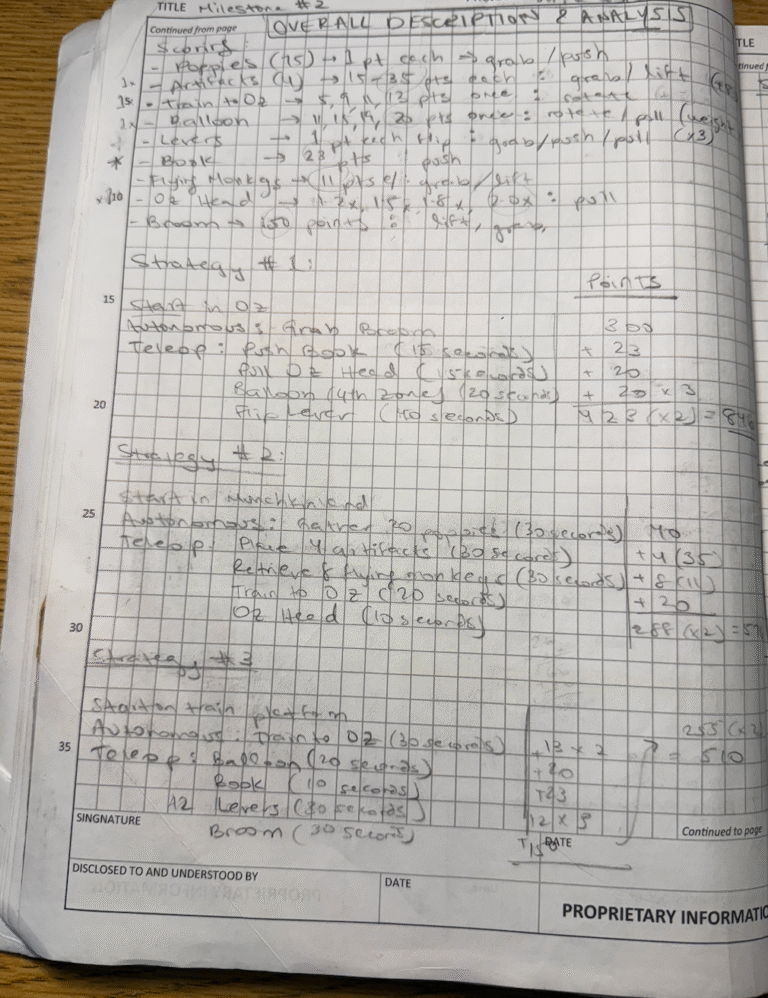 TITLE Milestone #2
Continued from page
OVERALL DESCRIPTION & ANALYSIS
TLE
Scoring:
- Poppies (75) → 1 pt each → grab/push
- Artifacts (4) → 15-35 pts each : grab/lift
- Train to OZ → 5, 9, 11, 13 pts once : rotate
- Balloon → 11, 15, 19, 20 pts once : rotate/pull (weight
- Levers → 1 pt each flip : grab/push/pull (x3)
* - Book → 23 pts : push
- Flying Monkeys → 11 pts e/: grab/lift
- Oz Head → 1.2x, 1.5x, 1.8x, 2.0x : pull
- Broom → 150 points : lift, grab,
Strategy #1:
Points
15
Start in OZ
Autonomous: Grab Broom 300
Teleop: Push Book (15 seconds) + 23
Pull OZ Head (15 seconds) + 20
Balloon (4th zone) (20 seconds) + 20 x 3
20
Flip Lever (40 seconds) 423 (x2) = 846
Strategy #2:
Start in Munchkinland
25
Autonomous: Gather 20 poppies (30 seconds) 40
Teleop: Place 4 artifacts (30 seconds) + 4(35)
Retrieve 8 flying monkeys (30 seconds) + 8(11)
Train to OZ (20 seconds) + 20
OZ Head (10 seconds) 288 (x2) =
30
Strategy #3
Start on train platform
255 (x2)
Autonomous: Train to OZ (30 seconds) 13 x 2 = 510
35
Teleop: Balloon (20 seconds) +20
Book (10 seconds) +23
12 Levers (30 seconds) 12 x 3
SINGNATURE
Broom (30 seconds) +150
DATE
Continued to page
DISCLOSED TO AND UNDERSTOOD BY
DATE
PROPRIETARY INFORMATIO